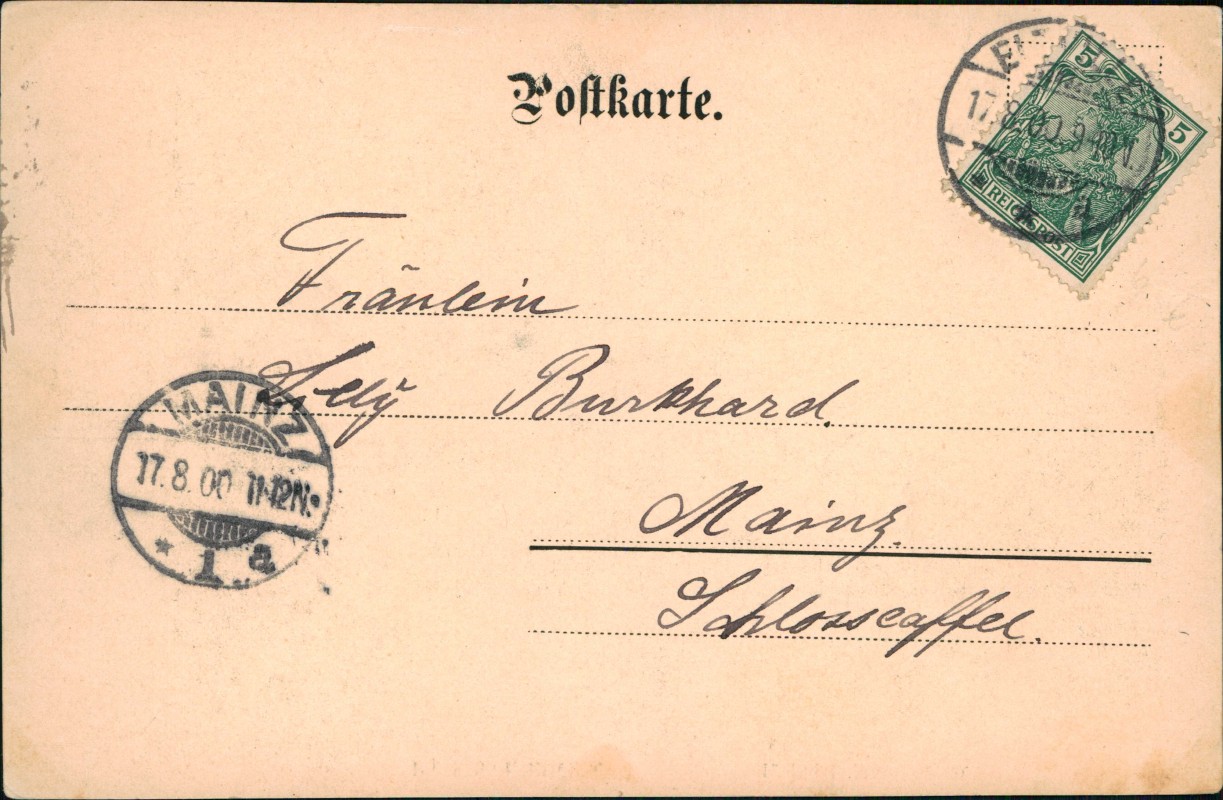 Postkarte.
5
5
17.8.00
REICHSPOST
Fräulein
Lilly Burkhard.
MAINZ
17.8.00 11-12N.
* 1 a
Mainz.
Schlosscaffee.